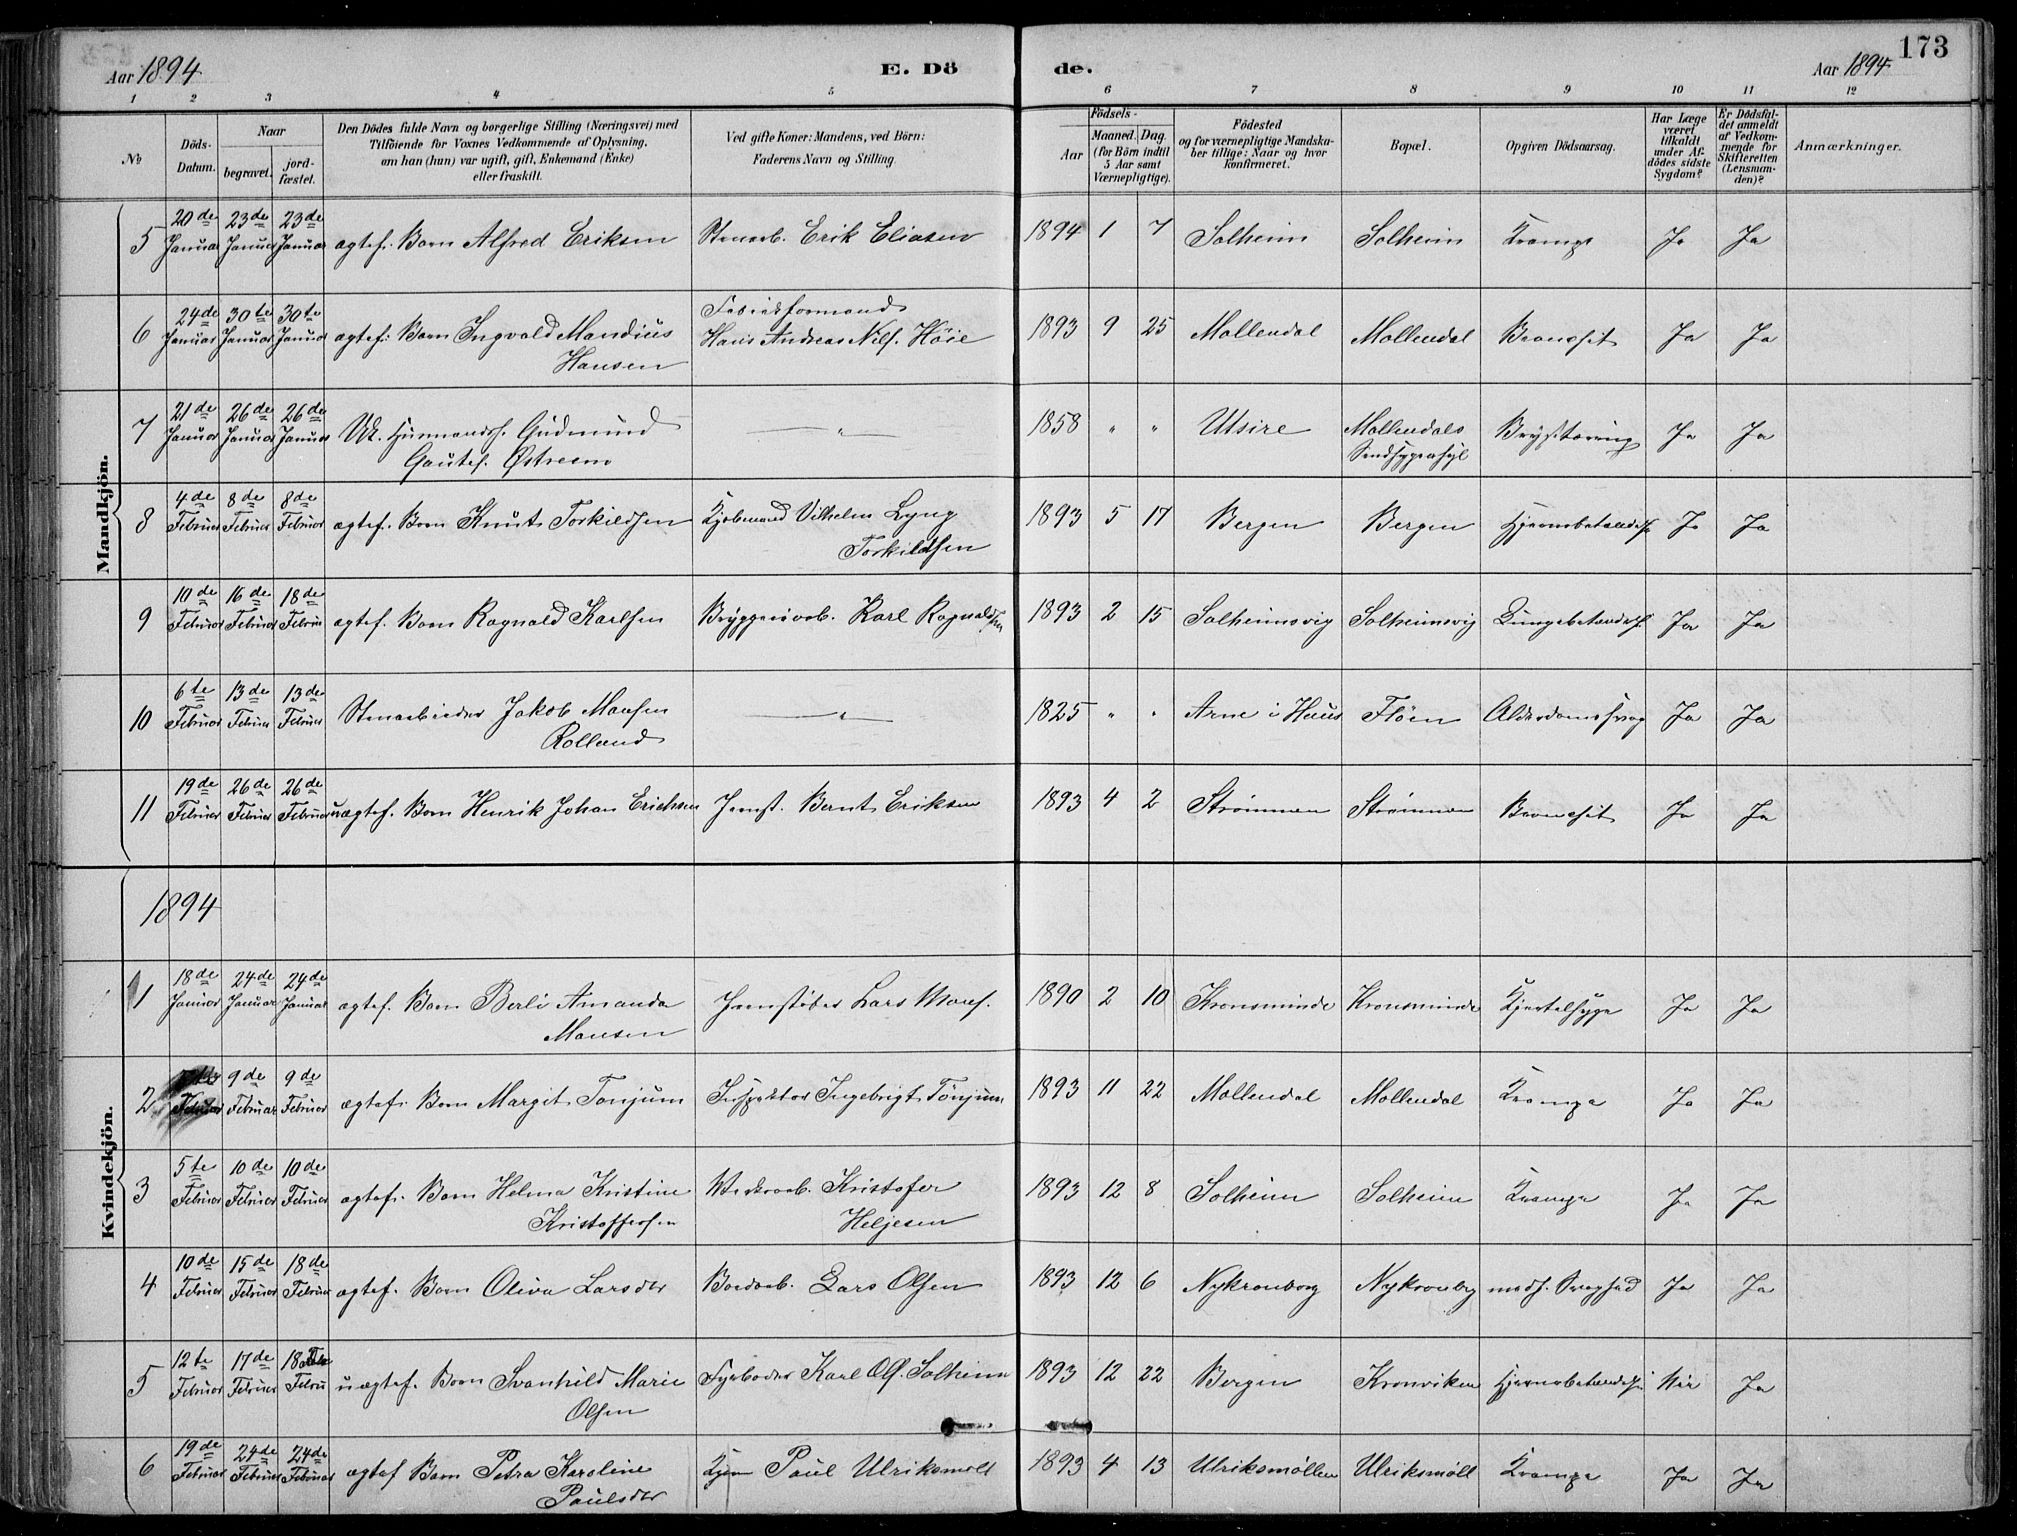 Aar 1894 E. Dö de. Aar 1894 173
1 2 3 4 5 6 7 8 9 10 11 12
No
Döds-Datum.
Naar
begravet.
jord-fæstet.
Den Dödes fulde Navn og borgerlige Stilling (Næringsvei) med
Tilföiende for Voxnes Vedkommende af Oplysning,
om han (hun) var ugift, gift, Enkemand (Enke)
eller fraskilt.
Ved gifte Koner: Mandens, ved Börn:
Faderens Navn og Stilling.
Födsels-
Aar
Maaned. Dag.
(for Börn indtil
5 Aar samt
Værnepligtige).
Födested
og for værnepligtige Mandska-
ber tillige: Naar og hvor
konfirmeret.
Bopæl.
Opgiven Dödsaarsag.
Har Læge
været
tilkaldt
under Af-
dödes sidste
Sygdom?
Er Dödsfal-
det anmeldt
af Vedkom-
mende for
Skifteretten
(Lensman-
den)?
Anmærkninger.
Mandkjön.
5 20de Januar 23de Januar 23de Januar ægtef. Barn Alfred Eriksen Stenarb. Erik Eliasen 1894 1 7 Solheim Solheim Krampe Ja Ja
6 24de Januar 30te Januar 30te Januar ægtef. Barn Ingvald Mandius Hansen Fabrikformand Hans Andreas Nils. Høie 1893 9 25 Møllendal Møllendal Bronchit Ja Ja
7 21de Januar 26de Januar 26de Januar Gudmund Gautes. Østreem – „ – 1858 „ „ Utsire Møllendals Sindsygeasyl Brysttæring Ja Ja
8 4de Februar 8de Februar 8de Februar ægtef. Barn Knut Torkildsen Kjøbmand Vilhelm Lyng Torkildsen 1893 5 17 Bergen Bergen Hjernebetændelse Ja Ja
9 10de Februar 16de Februar 18de Februar ægtef. Barn Ragnald Karlsen Bryggeriarb. Karl Ragnaldsen 1893 2 15 Solheimsvig Solheimsvig Lungebetændelse Ja Ja
10 6te Februar 13de Februar 13de Februar Stenarbeider Jakob Monsen Rolland – „ – 1825 „ „ Arne i Haus Fløen Alderdomssvag Ja Ja
11 19de Februar 26de Februar 26de Februar uægtef. Barn Henrik Johan Erichsen Jernst. Bernt Eriksen 1893 4 2 Strømmen Strømmen Bronchit Ja Ja
1894
Kvindekjön.
1 18de Januar 24de Januar 24de Januar ægtef. Barn Berli Amanda Monsen Jernstøber Lars Mons. 1890 2 10 Kronsminde Kronsminde Kjertelsyge Ja Ja
2 Februar 9de Februar 9de Februar ægtef. Barn Margit Tønjum Inspektør Ingebrigt Tønjum 1893 11 22 Møllendal Møllendal Krampe Ja Ja
3 5te Februar 10de Februar 10de Februar ægtef. Barn Helma Kristine Kristoffersen Værksarb. Kristofer Heljesen 1893 12 8 Solheim Solheim Krampe Ja Ja
4 10de Februar 15de Februar 18de Februar ægtef. Barn Oliva Larsdtr Lars Olsen 1893 12 6 Nykronborg Nykronborg medf. Svaghed Ja Ja
5 12te Februar 17de Februar 18de Februar uægtef. Barn Svanhild Marie Olsen Fyrbøder Karl Ols. Solheim 1893 12 22 Bergen Kronviken Hjernebetændelse Nei Ja
6 19de Februar 24de Februar 24de Februar ægtef. Barn Petra Karoline Paulsdtr Paul Ulriksmøll 1893 4 13 Ulriksmøllen Ulriksmøll Krampe Ja Ja